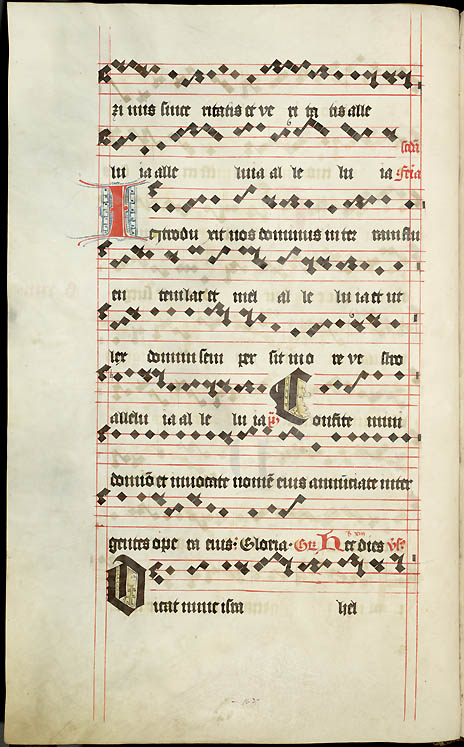 zi mis since ritatis et ve ri ta tis alle
lu ia alle luia al le lu ia feria
Introdu xit nos dominus in ter ram flu
en tem lac et mel al le lu ia et ut
lex domini sem per sit in o re ve stro
allelu ia al le lu ia ps Confite mini
domino et invocate nomen eius annunciate inter
gentes ope ra eius: Gloria. Gr. Hec dies vs.
Dicat nunc isra hel